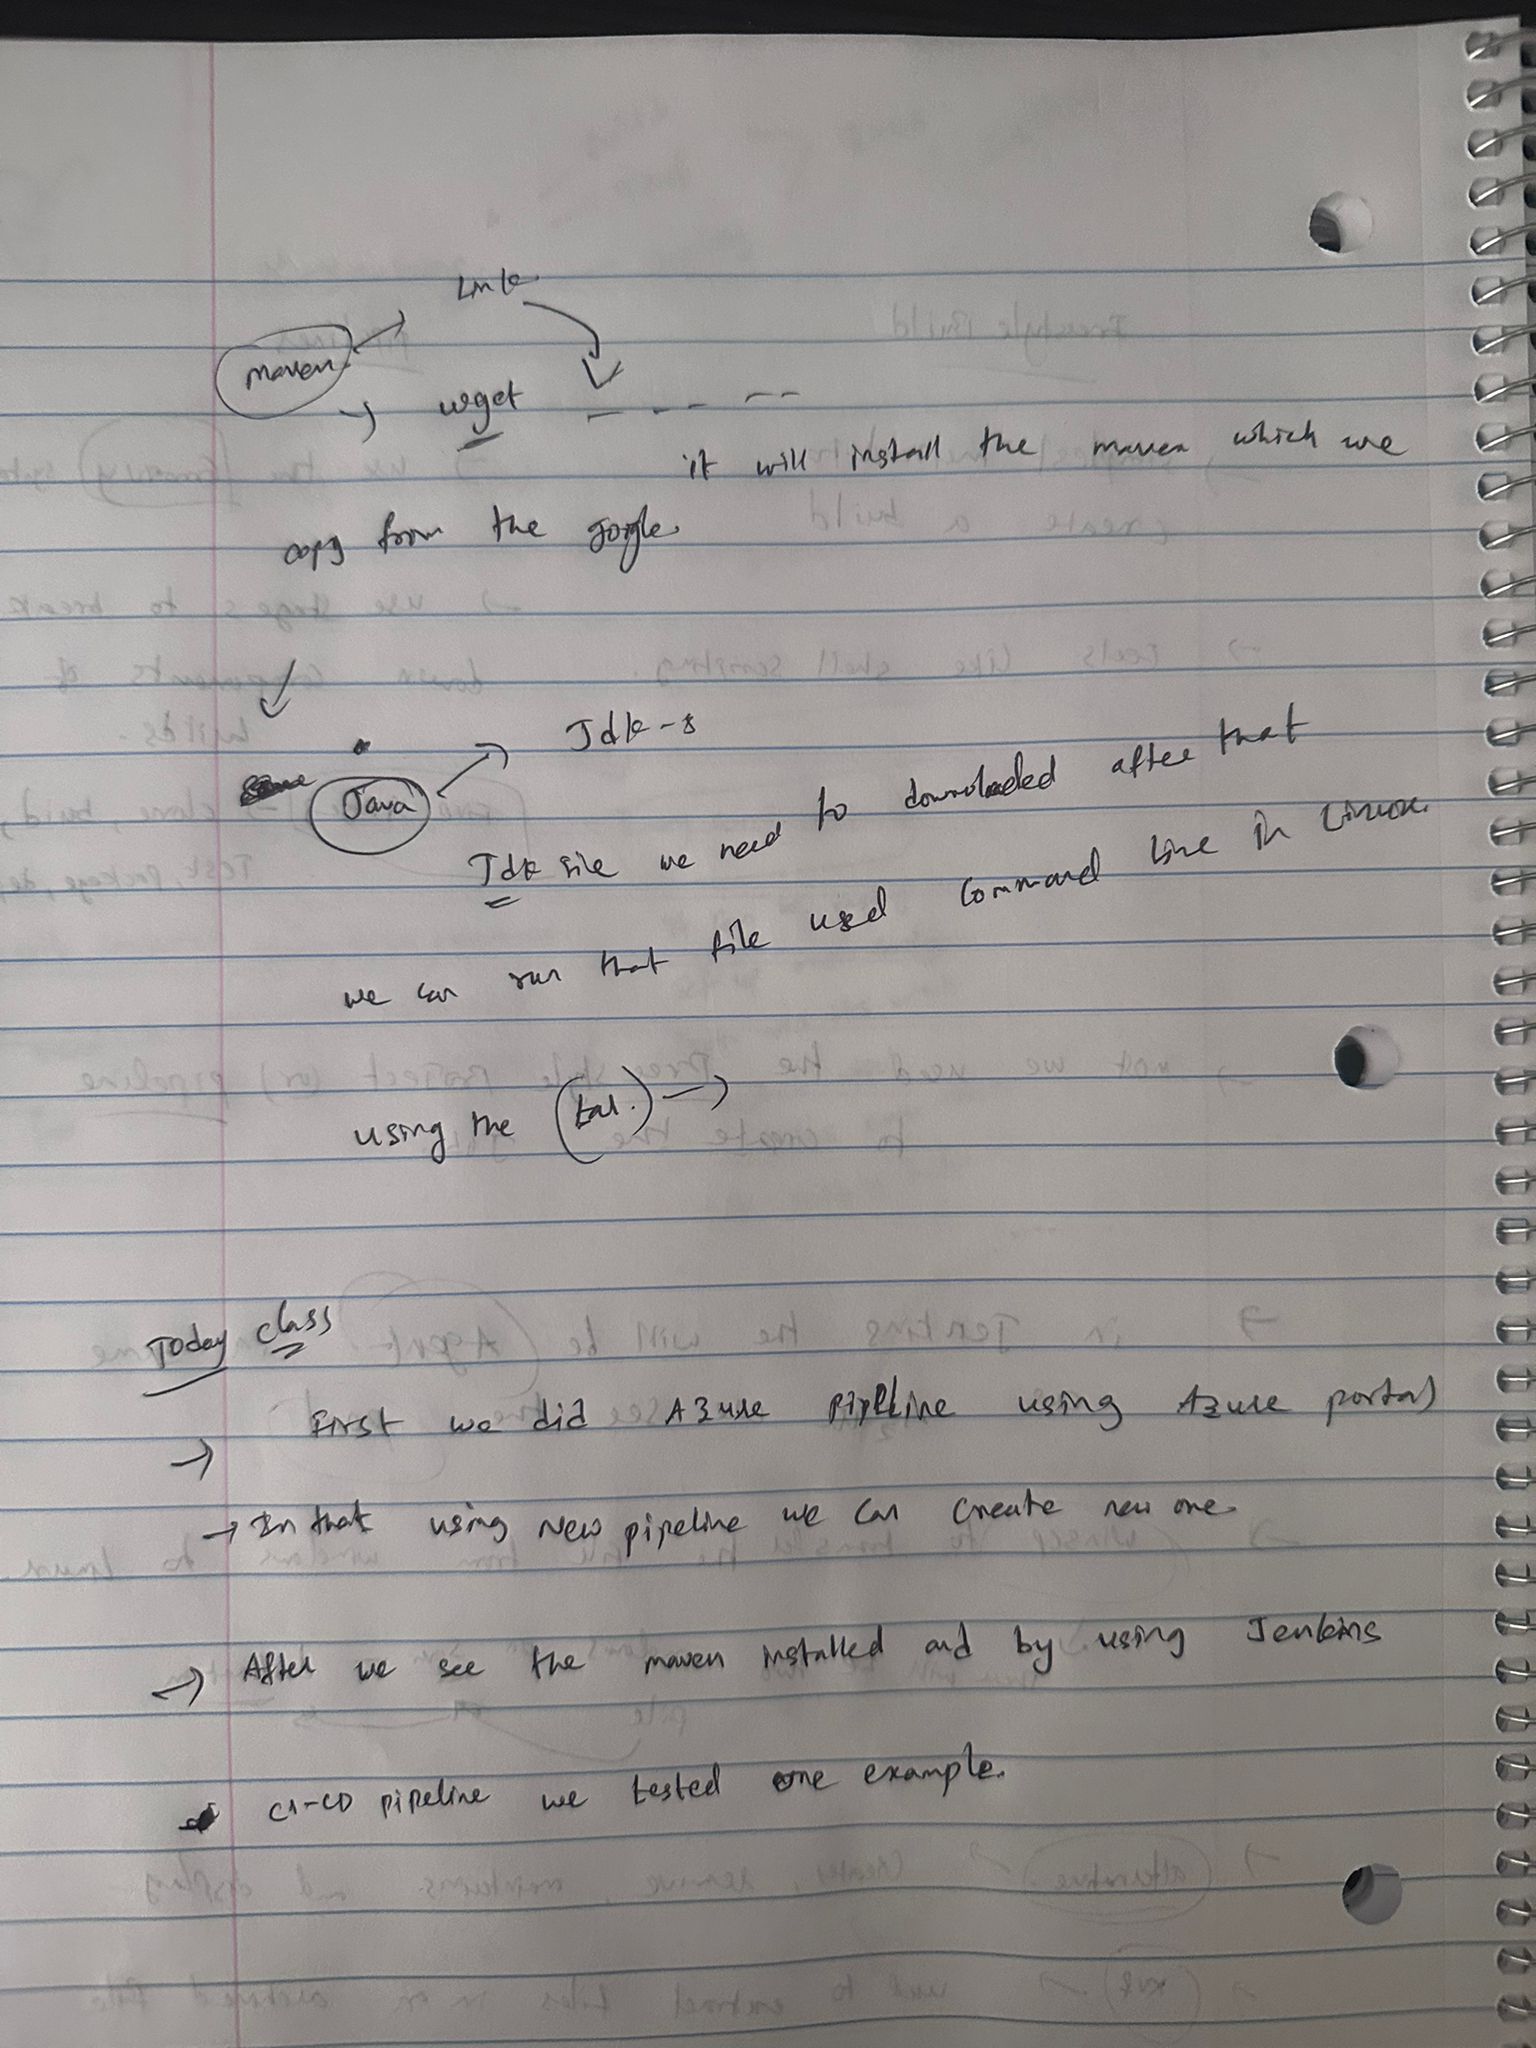 Link
maven
→ wget _ _ _ _ _
it will install the maven which we
copy from the google.
Jdk-8
Java
Jdk file we need to downloaded after that
we can run that file used Command line in Linux.
using the (tar.) →
Today class
→ First we did Azure Pipeline using Azure portal
→ In that using New pipeline we can create new one.
→ After we see the maven installed and by using Jenkins
CI-CD pipeline we tested one example.